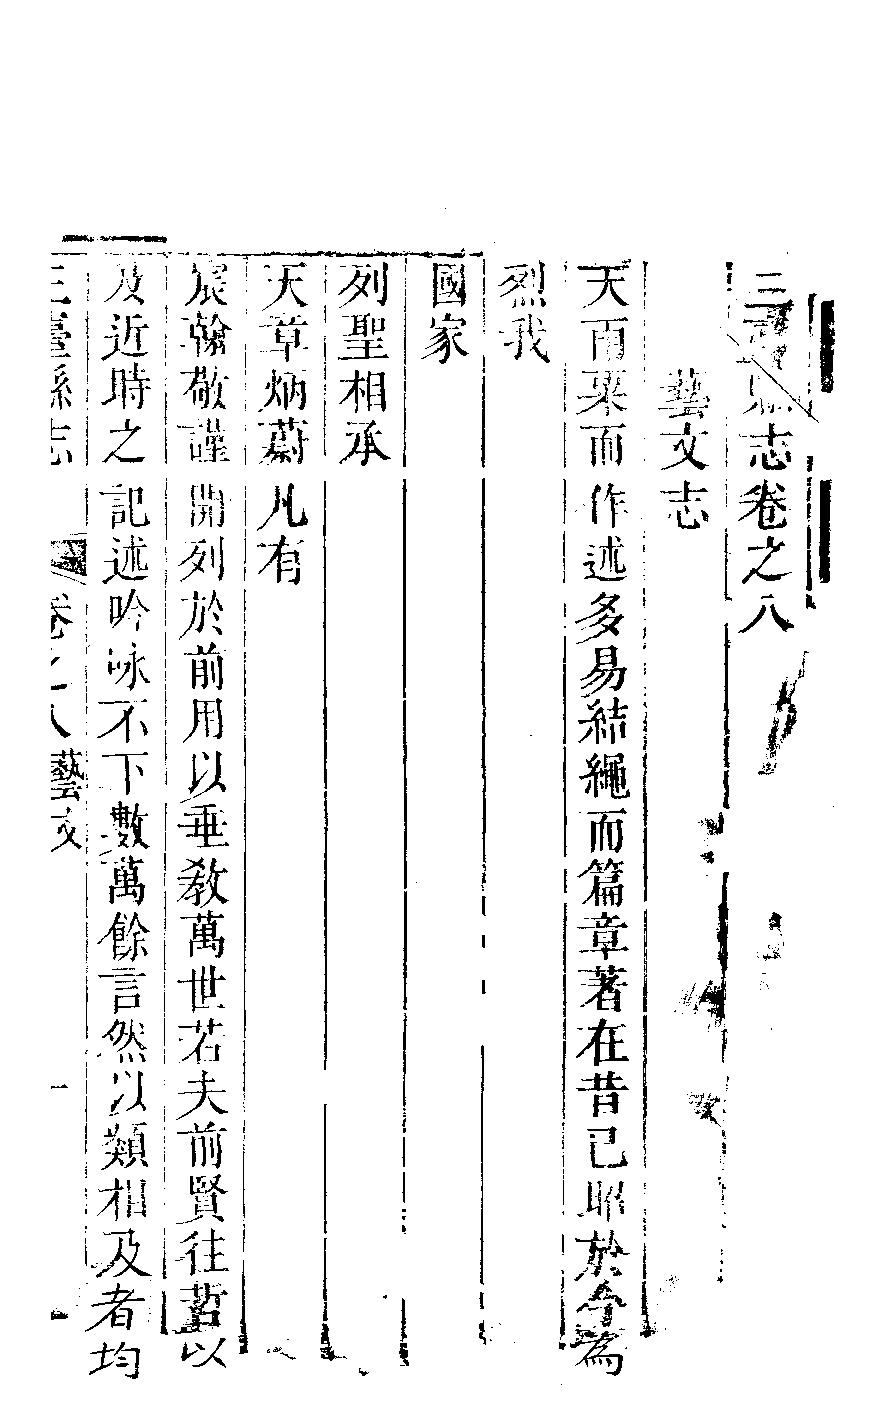 三臺縣志卷之八
藝文志
天雨粟而作述多易結繩而篇章著在昔已昭於今為
烈我
國家
列聖相承
天章炳蔚凡有
宸翰敬謹開列於前用以垂教萬世若夫前賢往哲以
及近時之記述吟咏不下數萬餘言然以類相及者均
三臺縣志 卷之八 藝文 一